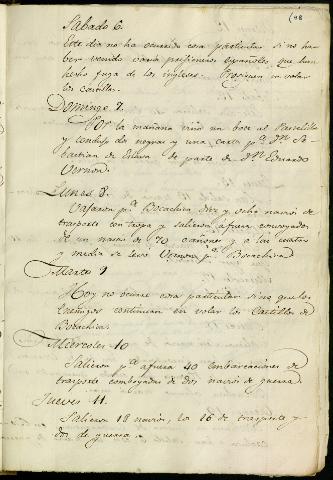 (98
Sabado 6.
Este dia no ha ocurrido cosa particular si no ha-
ver venido varios prisioneros españoles que han
hecho fuga de los ingleses. Prosiguen en volar
los castillos.
Domingo 7.
Por la mañana vino un bote al Pastelillo
y condujo dos negras y una carta pª. Dn. Se-
bastian de Eslava de parte de Dn. Eduardo
Vernon.
Lunes 8.
Vajaron pª. Bocachica diez y ocho navios de
trasporte con tropa y salieron afuera comvoyados
de un navio de 70 cañones y a las cuatro
y media se levo Vernon pª. Bocachica
Martes 9
Hoy no ocurre cosa particular sino que los
enemigos continuan en volar los Castillos de
Bocachica.
Miercoles 10
Salieron pª afuera 40 embarcaciones de
trasporte comboyadas de dos navios de guerra.
Jueves 11.
Salieron 18 navios, los 16 de trasporte y
dos de guerra.